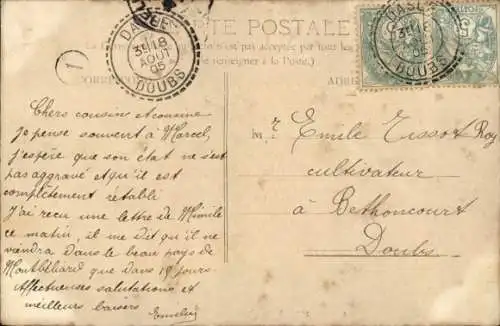 CARTE POSTALE
DASLE
3E 18
AOUT
05
DOUBS
1
DASLE
3E 18
05
DOUBS
pas acceptée par tous les
renseigner à la Poste.)
CORRES
ADR
Chers cousins et cousine
je pense souvent à Marcel,
j'espère que son état ne s'est
pas aggravé et qu'il est
complètement rétabli
J'ai reçu une lettre de Mimile
ce matin, il me dit qu'il ne
viendra dans le beau pays de
Montbéliard que dans 15 jours.
Affectueuses salutations et
meilleurs baisers
M.r Emile Tissot
cultivateur
à Bethoncourt
Doubs